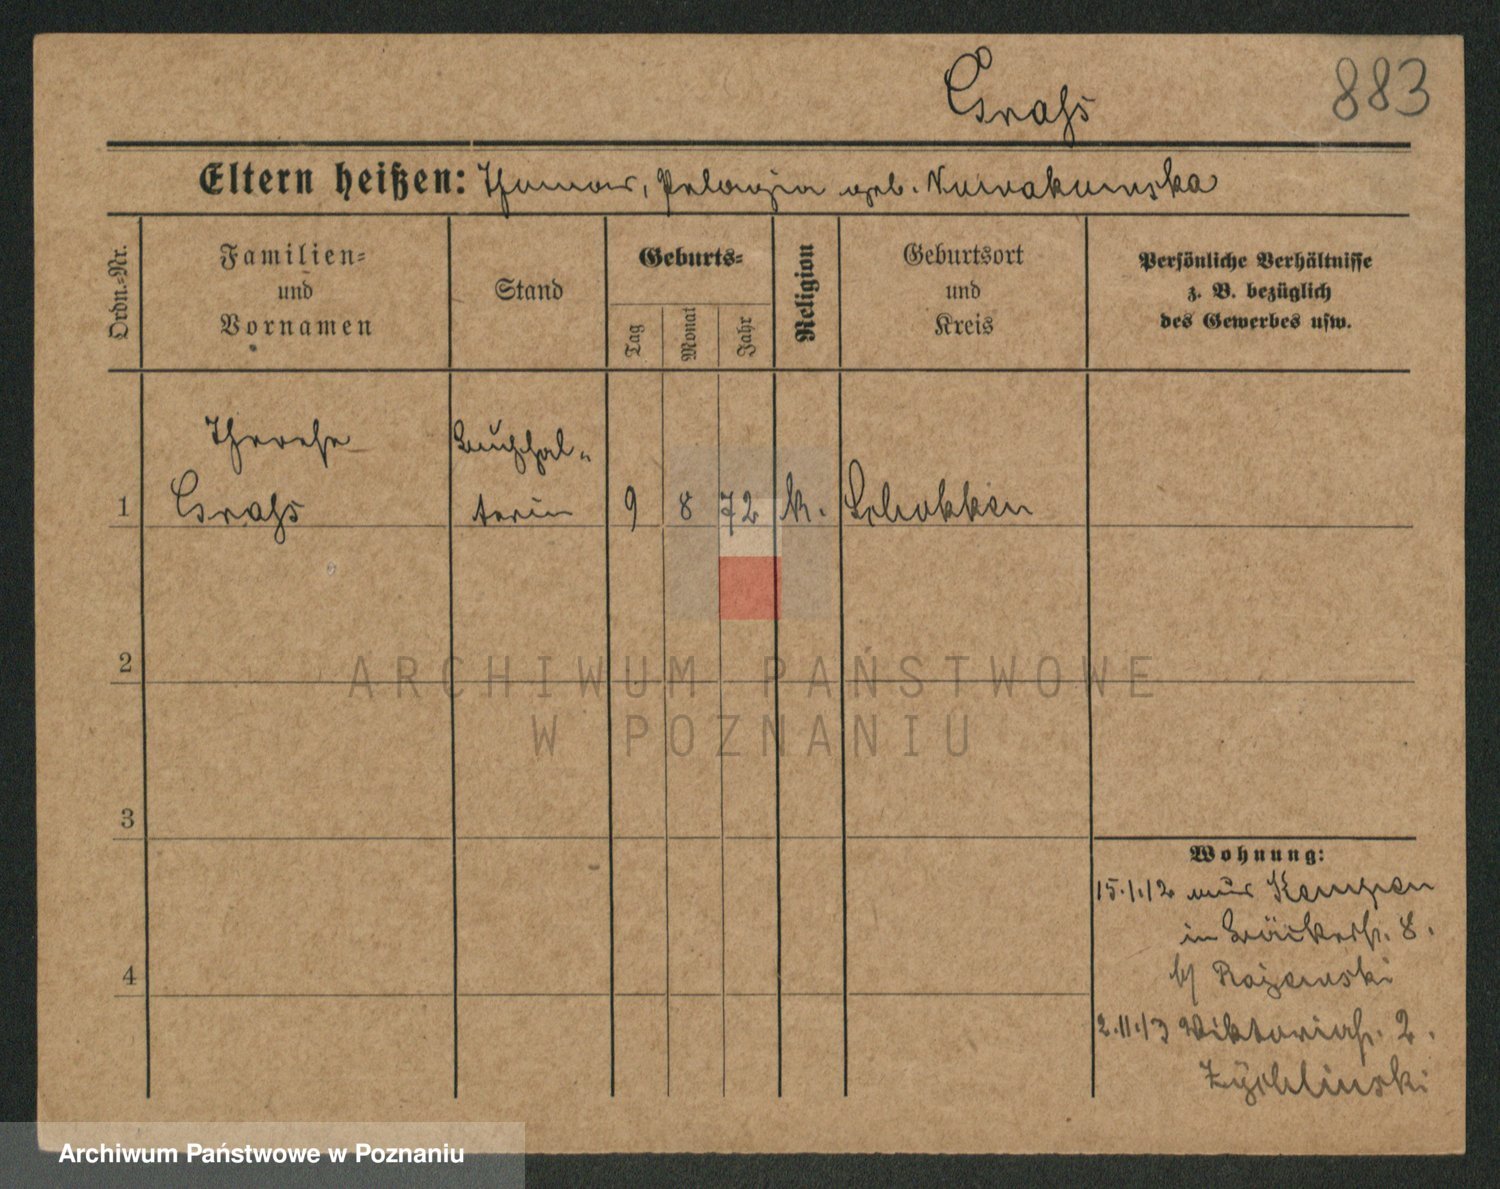 Grahs
883
Eltern heißen: Thomas, Pelagia geb. Nowakowska
Ordn.-Nr.
Familien-
und
Vornamen
Stand
Geburts-
Tag
Monat
Jahr
Religion
Geburtsort
und
Kreis
Persönliche Verhältnisse
z. B. bezüglich
des Gewerbes usw.
Therese
Grahs
Buchhal-
terin
1
9
8
72
k.
Schokken
2
ARCHIWUM PAŃSTWOWE
W POZNANIU
3
4
Wohnung:
15.1.12 aus Kempen
in Bäckerstr. 8.
b/
2.11.13 Viktoriastr. 2.
Zychlinski
Archiwum Państwowe w Poznaniu